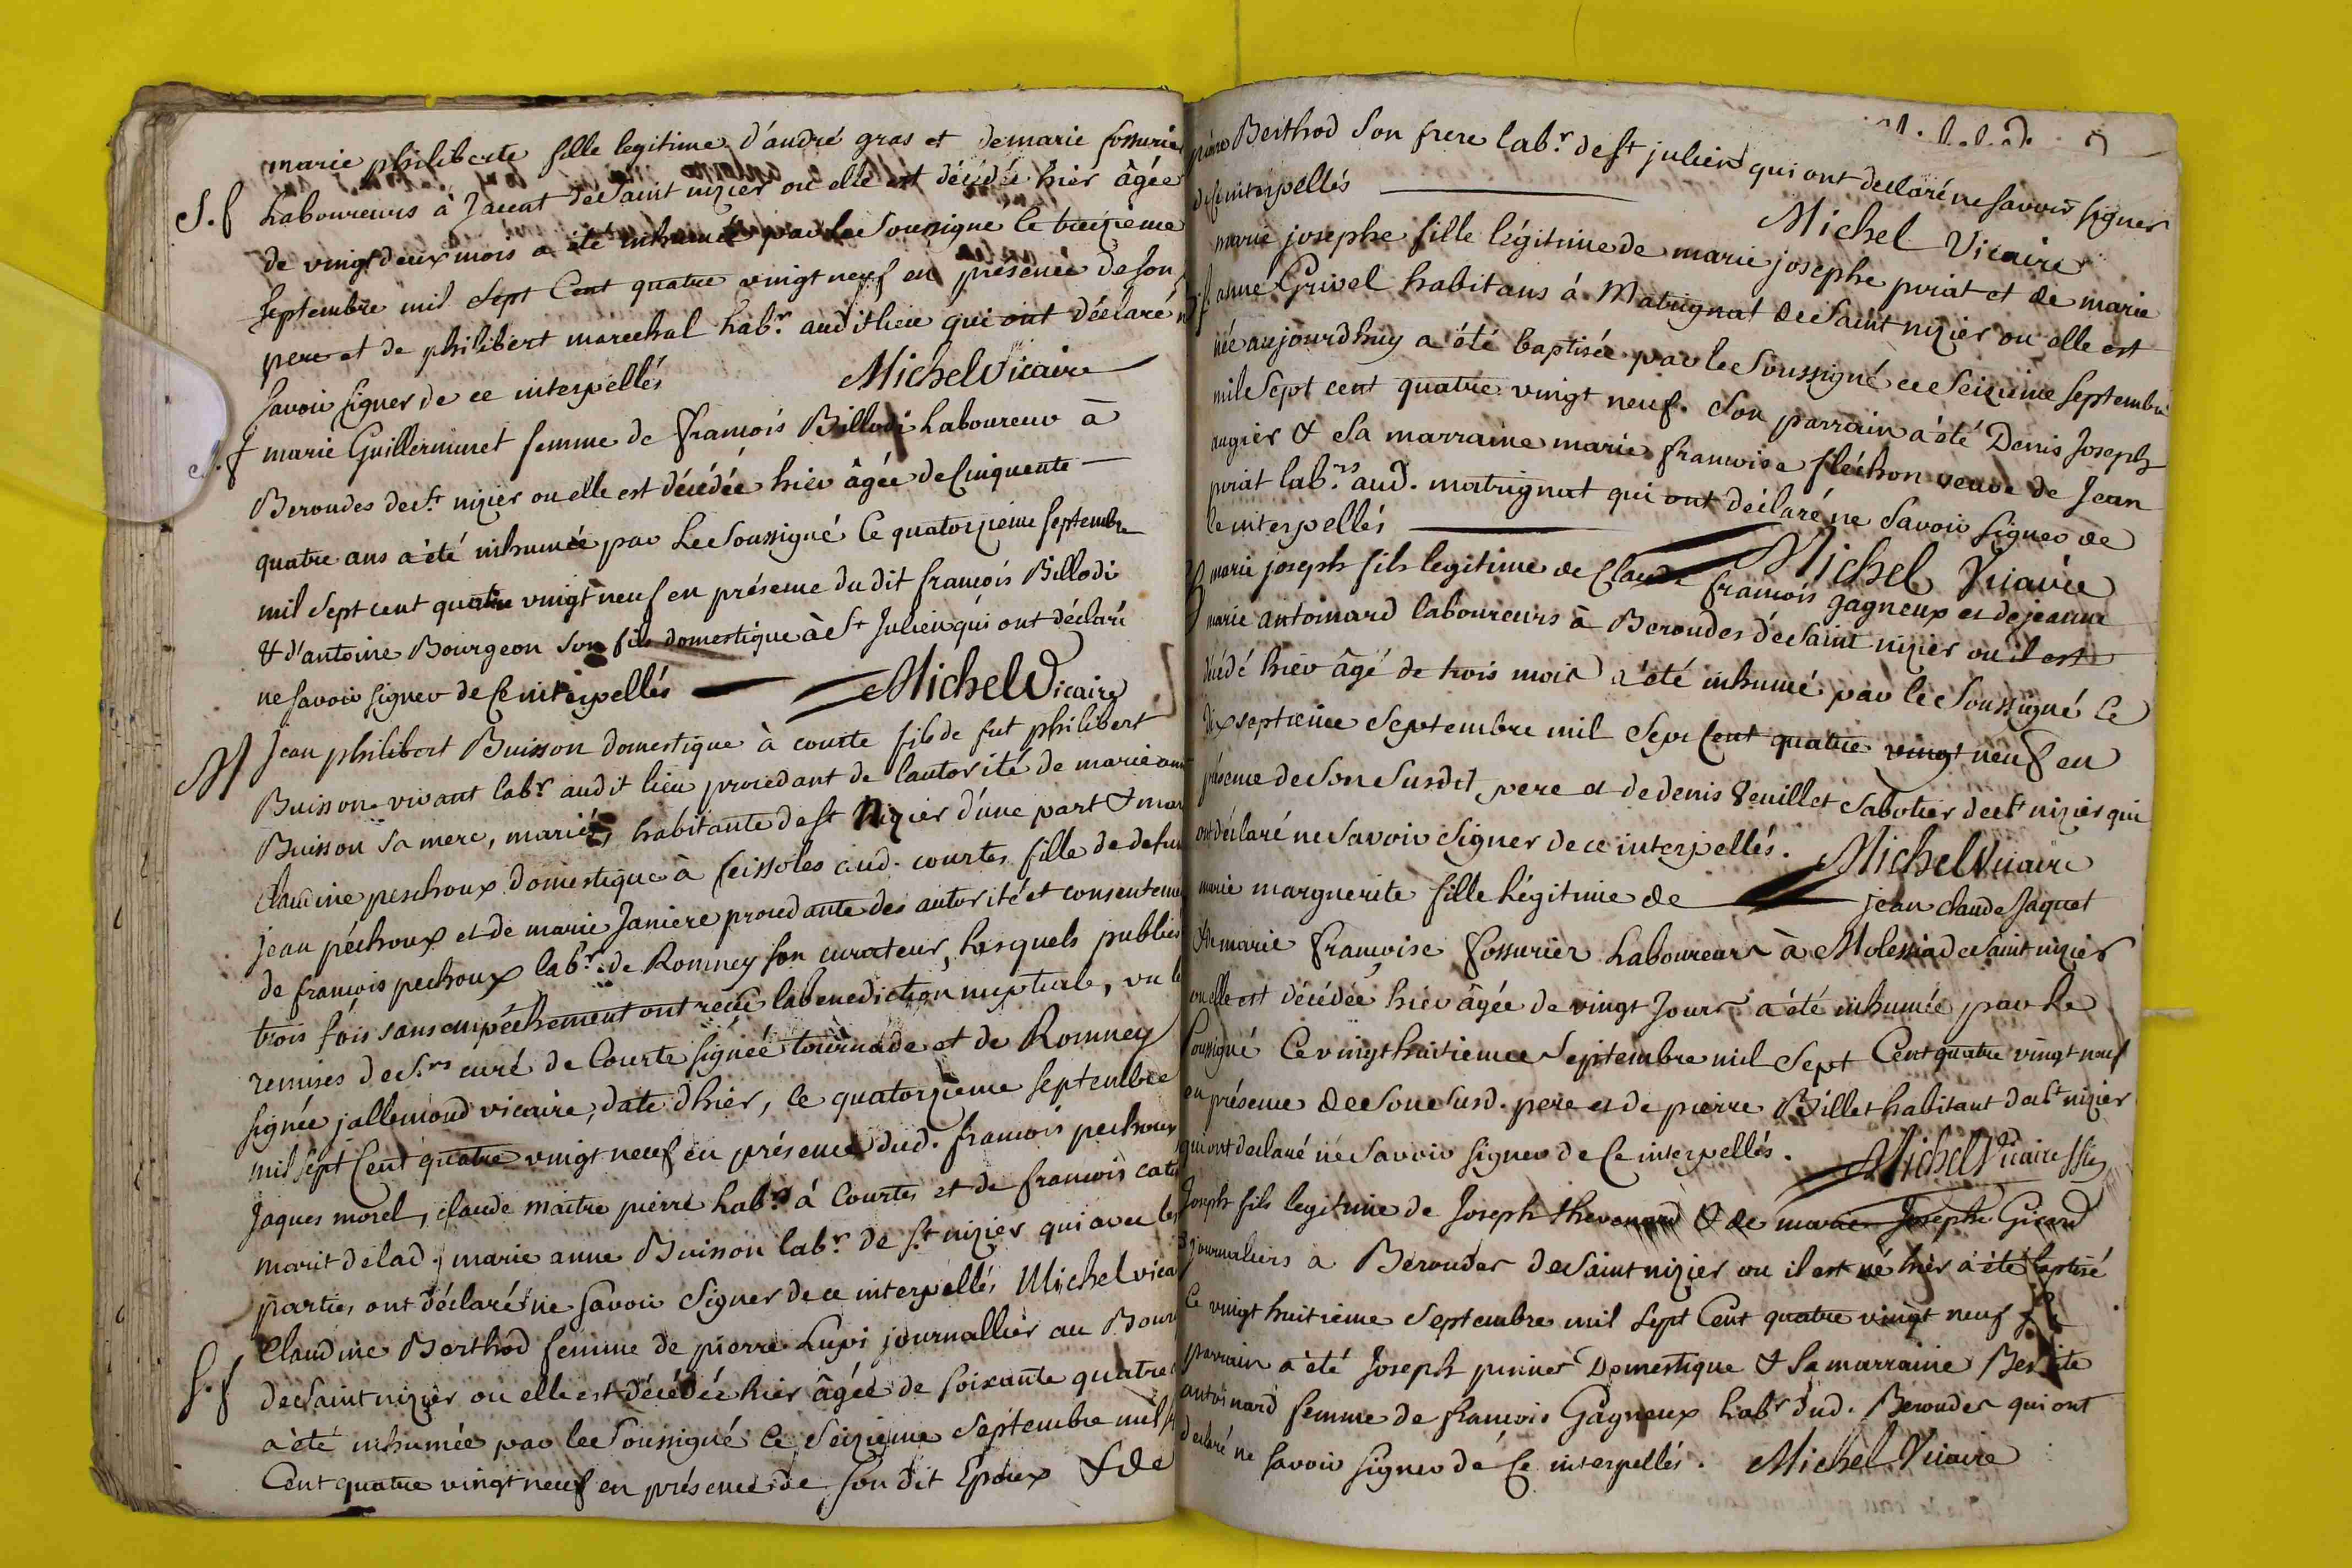 marie philiberte fille legitime d'andré gras et de marie fossurier
S. f Laboureurs à Jacent de Saint nizier ou elle est décédée hier âgée
de vingt deux mois a été inhumée par le Soussigné le treizieme
Septembre mil Sept Cent quatre vingt neuf en présence de son
pere et de philibert marechal lab.r audit lieu qui ont déclaré
Savoir signer de ce interpellés Michel Vicaire
S. f marie Guillerminet femme de françois Billodi Laboureur à
Beroudes de S.t nizier ou elle est décédée hier âgée de Cinquente
quatre ans a été inhumée par Le Soussigné le quatorzieme Septembre
mil Sept cent quatre vingt neuf en présence du dit françois Billodi
& d'antoine Bourgeon son fils domestique à St Julien qui ont déclaré
ne savoir signer de Ce interpellés Michel Vicaire
M Jean philibert Buisson domestique à courte fils de fut philibert
Buisson vivant lab.r audit lieu procedant de l'autorité de marie anne
Buisson Sa mere, mariés habitante de st Nizier d'une part & mar
claudine peschoux domestique à Ceissoles aud. courtes fille de defun
jean péchoux et de marie Janiere procedante des autorité et consenteme
de françois pechoux lab.r de Romney son curateur, Lesquels publiés
trois fois sans empéchement ont reçu la benediction nuptiale, vu le
remises de S.rs curé de Courte signée tournade et de Romney
signée jallemond vicaire, date d'hier, le quatorzieme Septembre
mil Sept Cent quatre vingt neuf en présence dud. françois pechoux
Jaques morel, claude maitre pierre lab.rs à Courtes et de françois cat
marit de lad. marie anne Buisson lab.r de St nizier qui avec les
parties ont déclaré ne savoir signer de ce interpellés Michel vica
Claudine Berthod femme de pierre Lupi journallier au Bourg
S. f de Saint nizier ou elle est décédée hier âgée de soixante quatre
a été inhumée par le Soussigné le Seizieme Septembre mil S
Cent quatre vingt neuf en présence de son dit Epoux & de
pierre Berthod son frere lab.r de st julien qui ont declaré ne savoir signer
de Ce interpellés Michel Vicaire
marie josephe fille légitime de marie josephe poriat et de marie
anne Grivel habitans à Matrignat de Saint nizier ou elle est
née aujourdhuy a été baptisée par le Soussigné ce Seizieme Septembre
mil Sept cent quatre vingt neuf. Son parrain a été Denis Joseph
augier & sa marraine marie françoise fléchon veuve de Jean
poriat lab.rs aud. matrignat qui ont déclaré ne savoir signer de
Ce interpellés Michel Vicaire
marie joseph fils legitime de Claude françois gagneux et de jeanne
marie antoinard laboureurs à Beroudes de Saint nizier ou il est
décédé hier âgé de trois mois a été inhumé par le Soussigné le
dix septieme Septembre mil Sept Cent quatre vingt neuf en
présence de son Susdit pere et de denis Veuillet Sabotier de St nizier qui
ont déclaré ne savoir signer de ce interpellés. Michel Vicaire
marie marguerite fille Légitime de jean claude Jaquet
& de marie françoise fossurier Laboureurs à Molessiad de Saint nizier
ou elle est décédée hier âgée de vingt Jours a été inhumée par Le
Soussigné Ce vingt huitieme Septembre mil Sept Cent quatre vingt neuf
en présence de son Susd. pere et de pierre Billet habitant de St nizier
qui ont declaré ne Savoir signer de Ce interpellés. Michel Vicaire
Joseph fils legitime de Joseph thevenard & de marie Josephe Gicard
journaliers a Beroudes de Saint nizier ou il est né hier a été baptisé
Ce vingt huitieme Septembre mil Sept Cent quatre vingt neuf
parrain a été Joseph Domestique & Sa marraine
antoinard femme de françois Gagneux lab.r dud. Beroudes qui ont
declaré ne savoir signer de Ce interpellés. Michel Vicaire